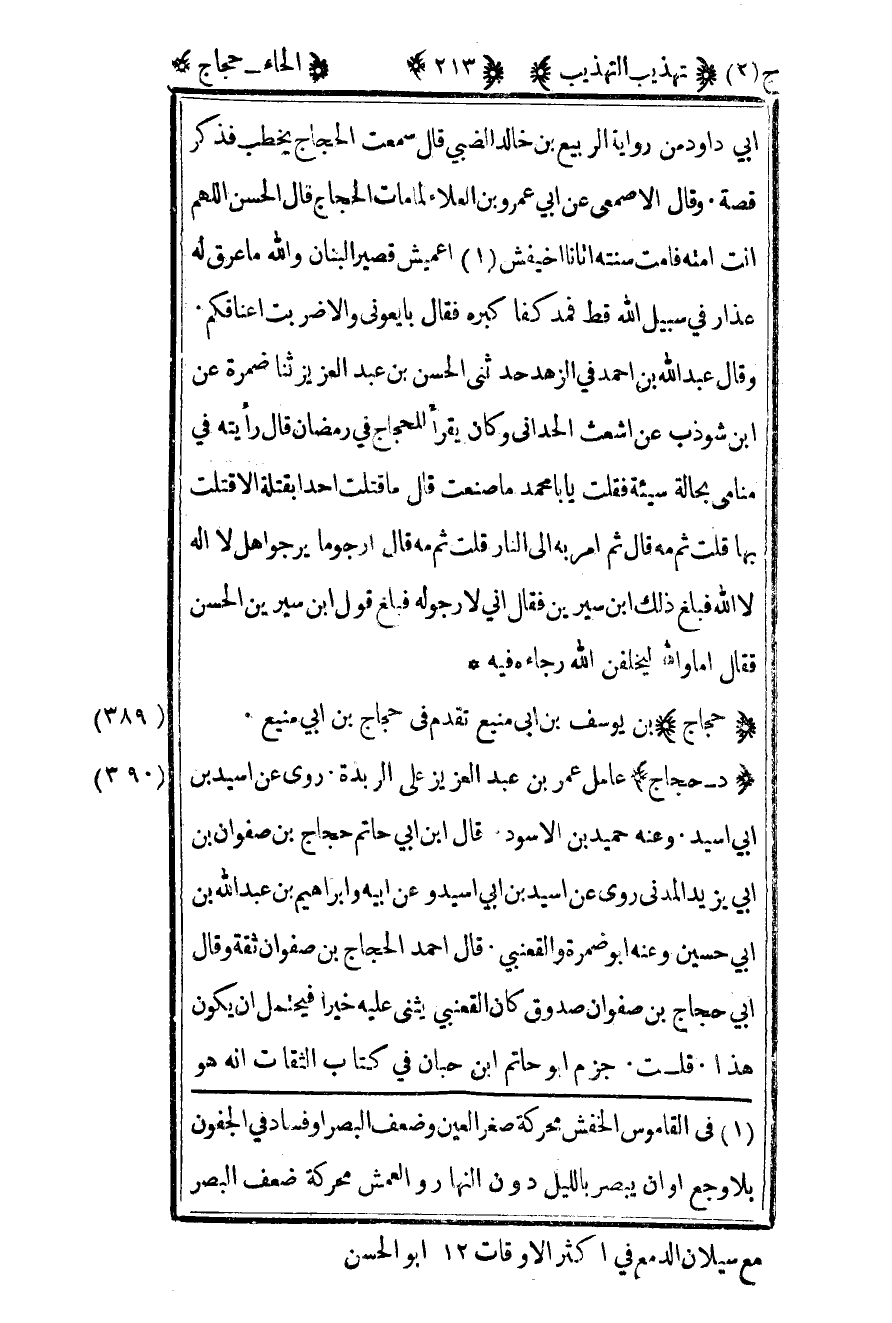 ج (٢) ﴿ تهذيب التهذيب ﴾ ﴿ ٢١٣ ﴾ ﴿ الحاء ـ حجاج ﴾
ابي داود من رواية الربيع بن خالد الضبي قال سمعت الحجاج يخطب فذكر
قصة ٠ وقال الاصمعى عن ابي عمرو بن العلاء لمامات الحجاج قال الحسن اللهم
انت امته فامت سنته اتانا اخيفش (١) اعميش قصير البنان والله ماعرق له
عذار في سبيل الله قط فمد كفا كبره فقال بايعونى والا ضربت اعناقكم ٠
وقال عبد الله بن احمد في الزهد حد ثنى الحسن بن عبد العزيز ثنا ضمرة عن
ابن شوذب عن اشعث الحدانى وكان يقرأ للحجاج في رمضان قال رأيته في
منامى بحالة سيئة فقلت يابا محمد ماصنعت قال ماقتلت احدا بقتلة الا قتلت
بها قلت ثم مه قال ثم امر به الى النار قلت ثم مه قال ارجوما يرجواهل لا اله
لا الله فبلغ ذلك ابن سيرين فقال اني لارجوله فبلغ قول ابن سيرين الحسن
فقال اما والله ليخلفن الله رجاءه فيه *
﴿ حجاج ﴾ بن يوسف بن ابى منيع تقدم فى حجاج بن ابي منيع ٠ (٣٨٩)
﴿ د ـ حجاج ﴾ عامل عمر بن عبد العزيز على الربذة ٠ روى عن اسيد بن (٣٩٠)
ابي اسيد ٠ وعنه حميد بن الاسود ٠ قال ابن ابي حاتم حجاج بن صفوان بن
ابي يزيد المدنى روى عن اسيد بن ابي اسيد و عن ابيه وابراهيم بن عبد الله بن
ابي حسين وعنه ابو ضمرة والقعنبي ٠ قال احمد الحجاج بن صفوان ثقة وقال
ابي حجاج بن صفوان صدوق كان القعنبي يثنى عليه خيرا فيحتمل ان يكون
هذا ٠ قلت ٠ جزم ابو حاتم ابن حبان في كتاب الثقات انه هو
(١) فى القاموس الخفش محركة صغر العين وضعف البصر اوفساد في الجفون
بلا وجع او ان يبصر بالليل دون النهار و العمش محركة ضعف البصر
مع سيلان الدمع في اكثر الاوقات ١٢ ابو الحسن